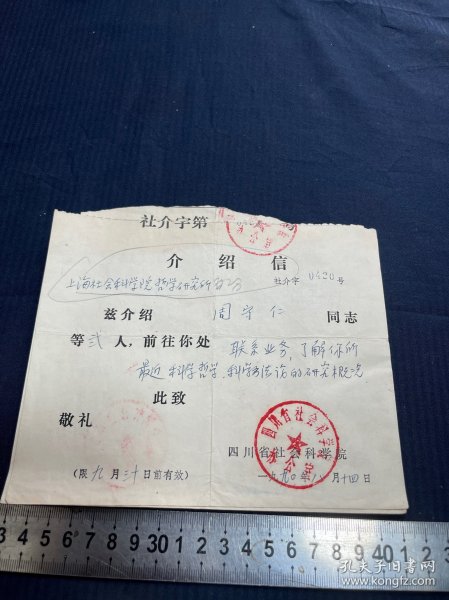 社介字第
介绍信
社介字0420号
上海社会科学院哲学研究所
兹介绍 周守仁 同志
等贰人，前往你处 联系业务，了解你所
最近科学哲学、科学方法论的研究概况
此致
敬礼
四川省社会科学院
（限九月三十日前有效）
一九九〇年八月十四日
四川省社会科学院
办公室
孔夫子旧书网
kongfz.com